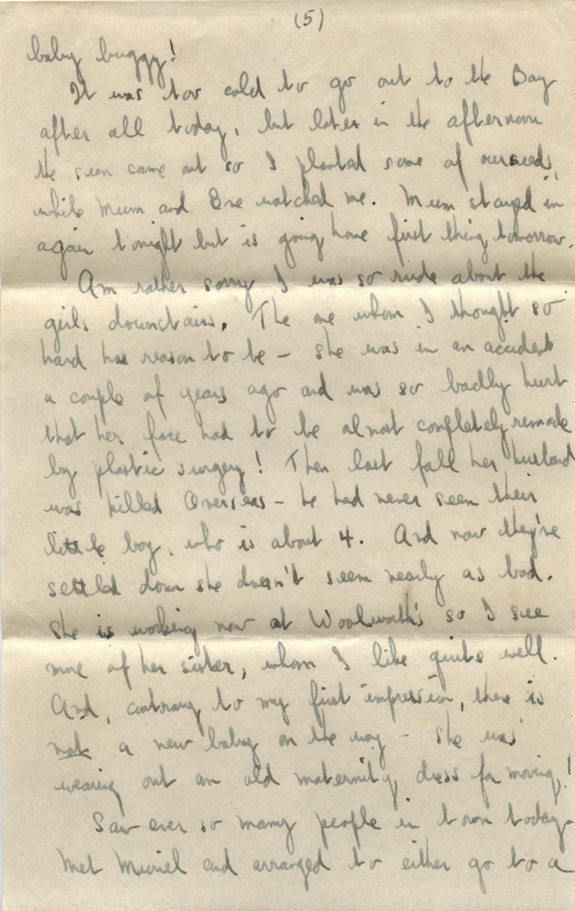 (5)
baby buggy!
It was too cold to go out to the Bay
after all today, but later in the afternoon
the sun came out so I planted some of our seeds,
while Mum and Eve watched me. Mum stayed in
again tonight but is going home first thing tomorrow.
Am rather sorry I was so rude about the
girls downstairs. The one whom I thought so
hard has reason to be – she was in an accident
a couple of years ago and was so badly hurt
that her face had to be almost completely remade
by plastic surgery! Then last fall her husband
was killed Overseas – he had never seen their
little boy, who is about 4. And now they're
settled down she doesn't seem nearly as bad.
She is working now at Woolworth's so I see
more of her sister, whom I like quite well.
And, contrary to my first impression, there is
not a new baby on the way – she was
wearing out an old maternity dress for moving!
Saw ever so many people in town today –
Met Muriel and arranged to either go to a